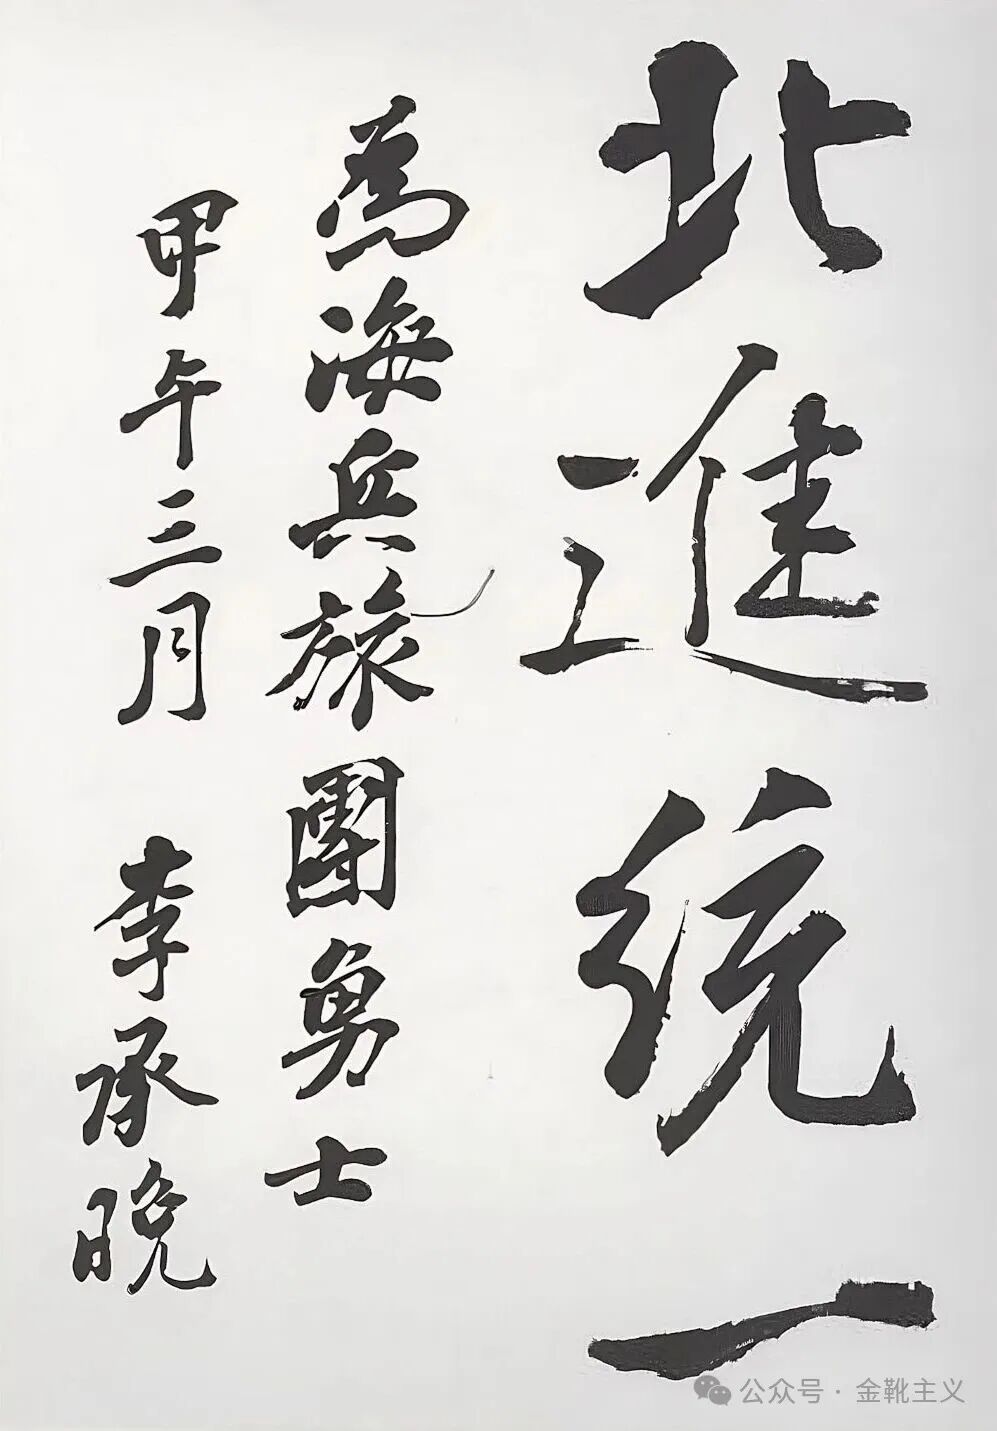 北進統一
為海兵旅團勇士
甲午三月 李承晚
公众号 · 金靴主义